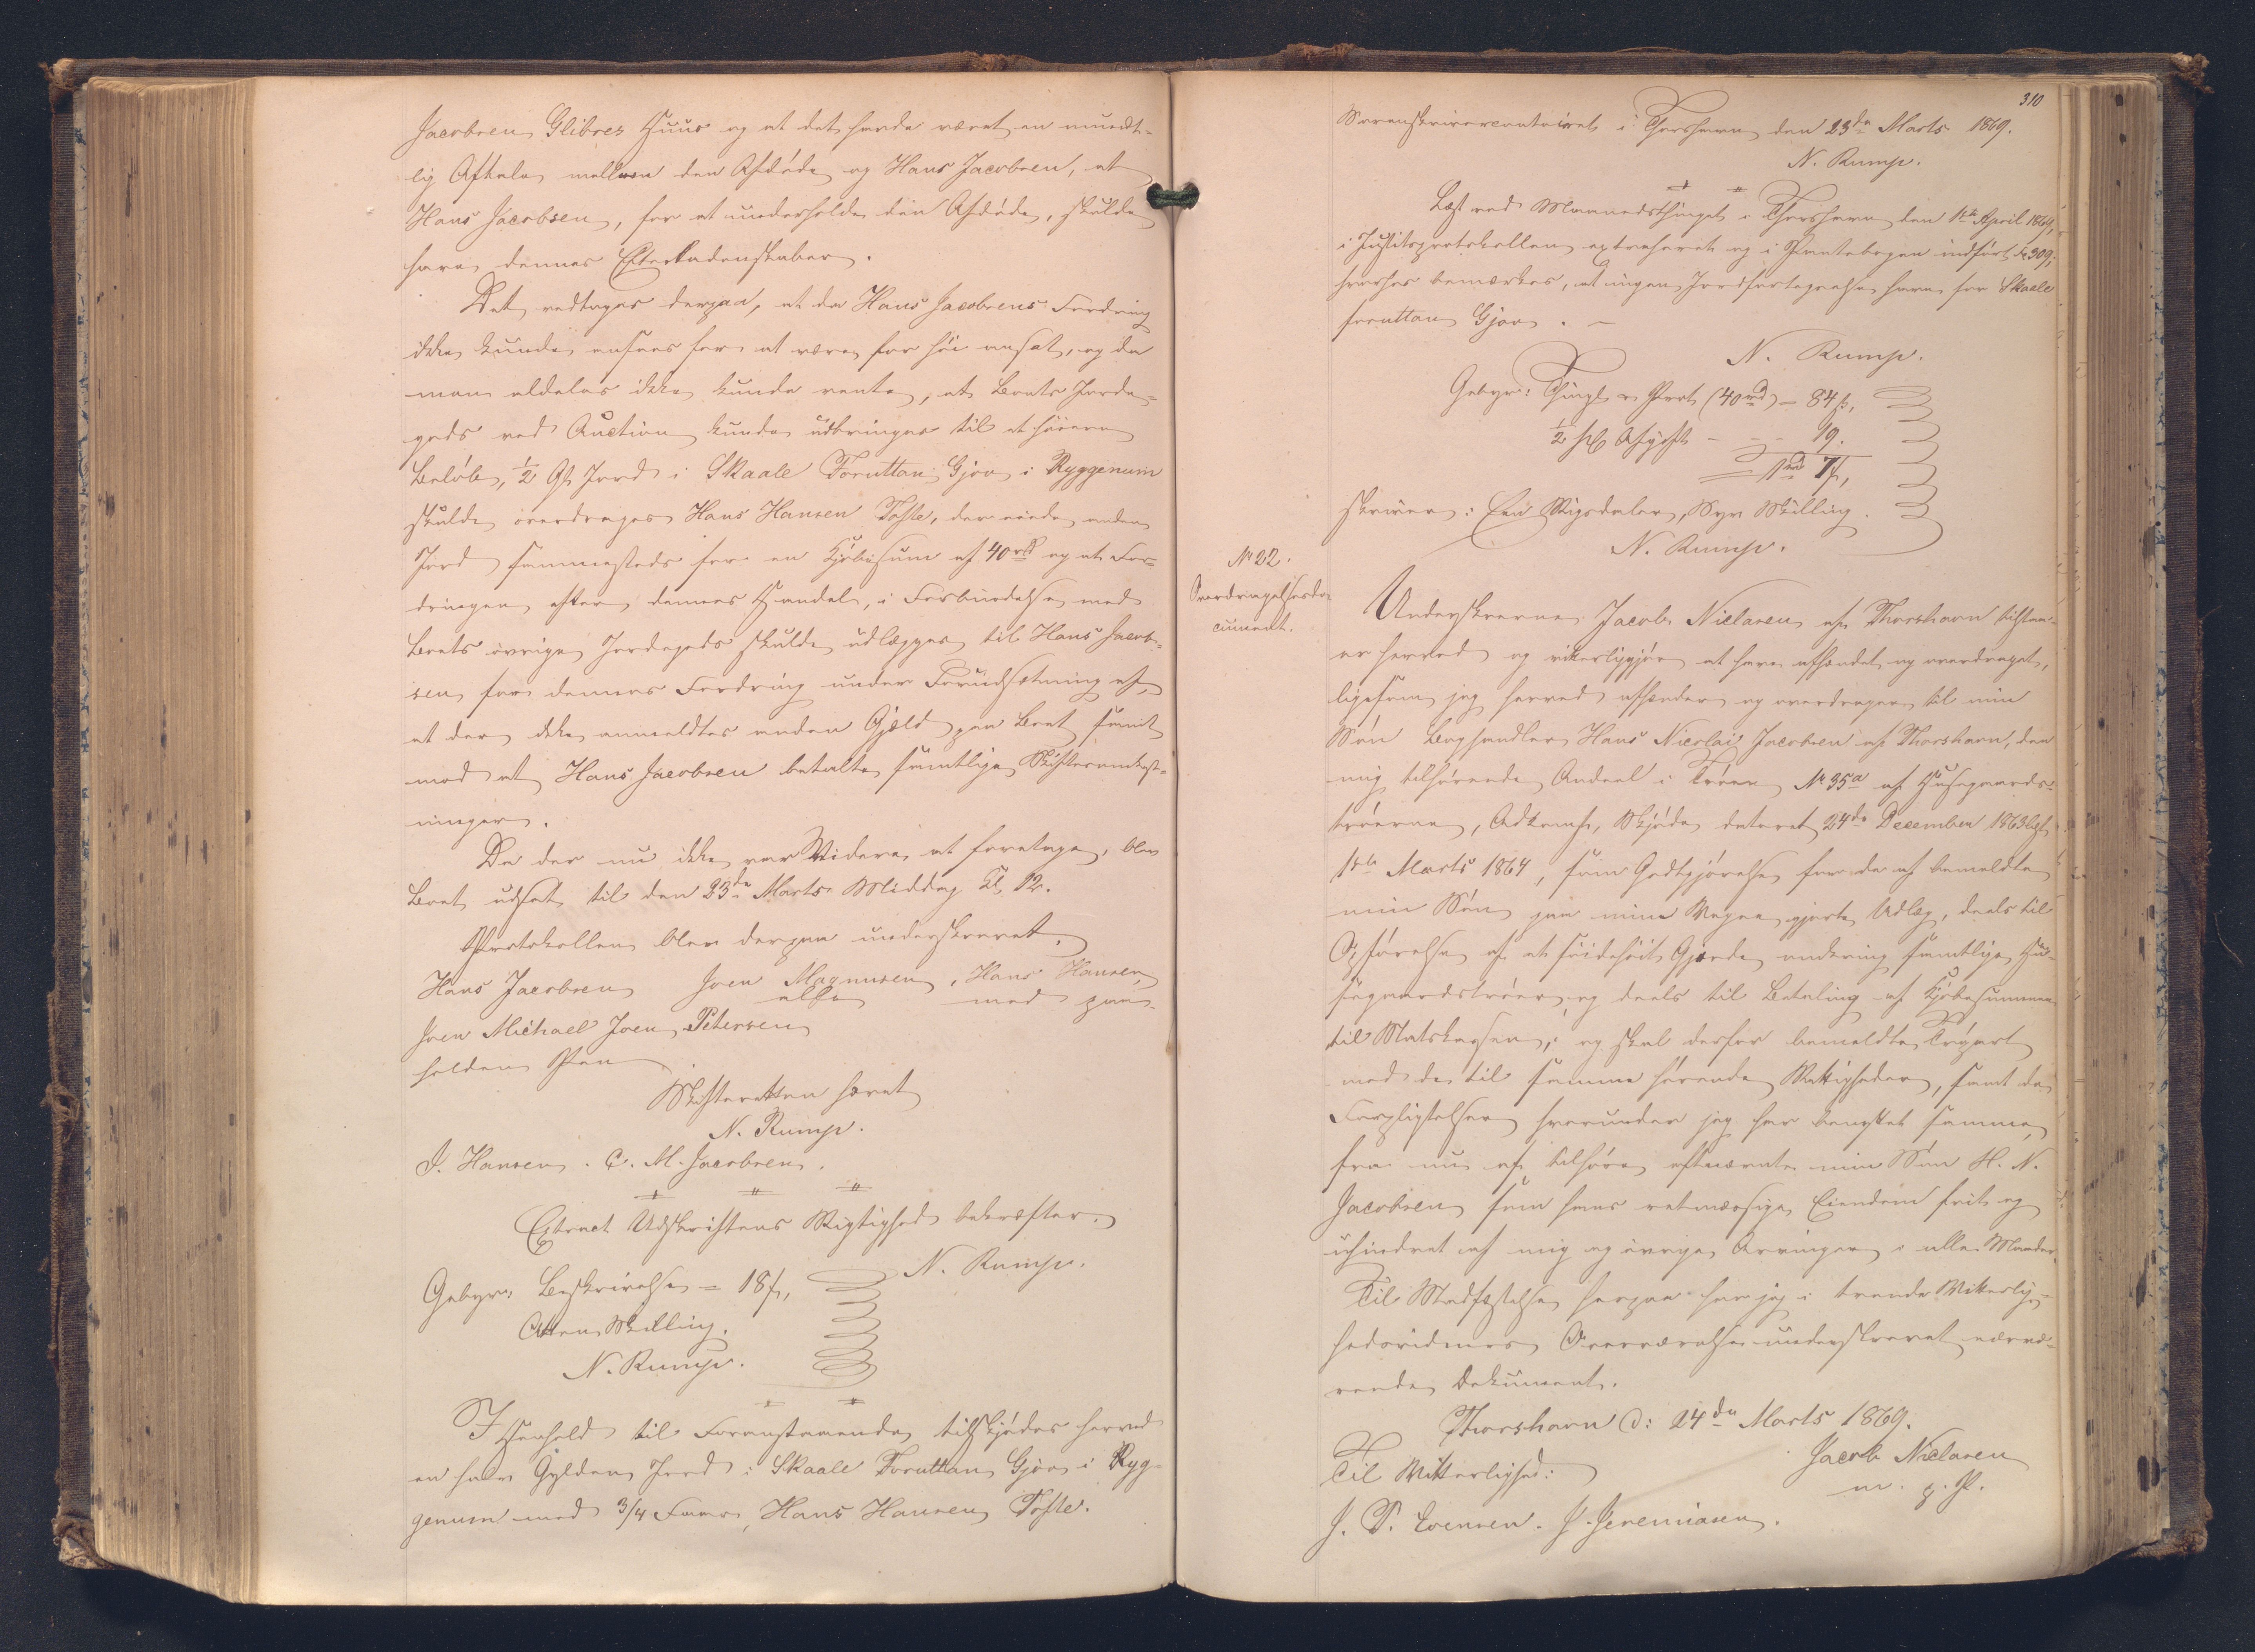 Jacobsen Glibres Huus og at det havde været en mundt-
lig Aftale mellem den Afdøde og Hans Jacobsen, at
Hans Jacobsen, for at underholde den Afdøde, skulde
have dennes Efterladenskaber.
Det vedtoges derpaa, at da Hans Jacobsens Fordring
ikke kunde ansees for at være for høi ansat, og da
man aldeles ikke kunde vente, at Boets Jorde-
gods ved Auction kunde udbringes til et høiere
Beløb, ½ Gl Jord i Skaale Foruttan Gjov i Ryggenum
skulde overdrages Hans Hansen Tofte, der eiede anden
Jord sammesteds for en Kjøbesum af 40 rd og at For-
dringen efter dennes Handel, i Forbindelse med
Boets øvrige Jordegods skulde udlægges til Hans Jacob-
sen for dennes Fordring under Forudsætning af,
at der ikke anmeldtes anden Gjæld paa Boet samt
mod at Hans Jacobsen betalte samtlige Skifteomkost-
ninger.
Da der nu ikke var Videre at foretage, blev
Boet udsat til den 23de Marts Middag Kl. 12.
Protokollen blev derpaa underskrevet.
Hans Jacobsen Joen Magnusen, Hans Hansen,
alle med paa-
Joen Michael Joen Petersen
holden Pen
Skifteretten hævet
N. Rump.
J. Hansen. C. M. Jacobsen.
Extract Udskriftens Rigtighed bekræfter.
N. Rump.
Gebyr: Beskrivelse = 18 ß,
Atten Skilling.
N. Rump.
I Henhold til Foranstaaende tilskjødes herved
en halv Gylden Jord i Skaale Foruttan Gjov i Ryg-
genum med 3/4 Faar, Hans Hansen Tofte.
310
Sorenskrivercontoiret i Thorshavn den 23de Marts 1869.
N. Rump.
Læst ved Maanedsthinget i Thorshavn den 1ste April 1869,
i Justitsprotokollen extraheret og i Pantebogen indført Fo 309,
hvorhos bemærkes, at ingen Jordfortegnelse haves for Skaale
foruttan Gjov. -
N. Rump.
Gebyr: Thingl. & Prot (40 rd) = 84 ß,
½ pC Afgift - - 19.
1 rd 7 ß,
skriver: Een Rigsdaler, Syv Skilling.
N. Rump.
No 22.
Overdragelsesdo-
cument.
Underskrevne Jacob Nielsen af Thorshavn tilstaa-
er herved og vitterliggjør at have afhændet og overdraget,
ligesom jeg herved afhænder og overdrager til min
Søn Boghandler Hans Nicolai Jacobsen af Thorshavn, den
mig tilhørende Andeel i Trøen No 35a af Husagaards-
trøerne, Adkomst, Skjøde dateret 24de December 1863 lgf.
1ste Marts 1864, som Godtgjørelse for de af bemeldte
min Søn paa mine Vegne gjorte Udlæg, deels til
Opførelse af et Gjærde omkring samtlige Hu-
sagaardstrøer, og deels til Betaling af Kjøbesummen
til Statskassen; og skal derfor bemeldte Trøpart
med de til samme hørende Rettigheder, samt de
Forpligtelser hvorunder jeg har benyttet samme
fra nu af tilhøre oftnævnte min Søn H. N.
Jacobsen som hans retmæssige Eiendom frit og
uhindret af mig og øvrige Arvinger i alle Maader.
Til Stadfæstelse herpaa har jeg i tvende Vitterlig-
hedsvidners Overværelse underskrevet nærvæ-
rende Dokument.
Thorshavn d: 24de Marts 1869.
Jacob Nielsen
m. p. P.
Til Vitterlighed:
J. P. Evensen. J. Jeremiasen.